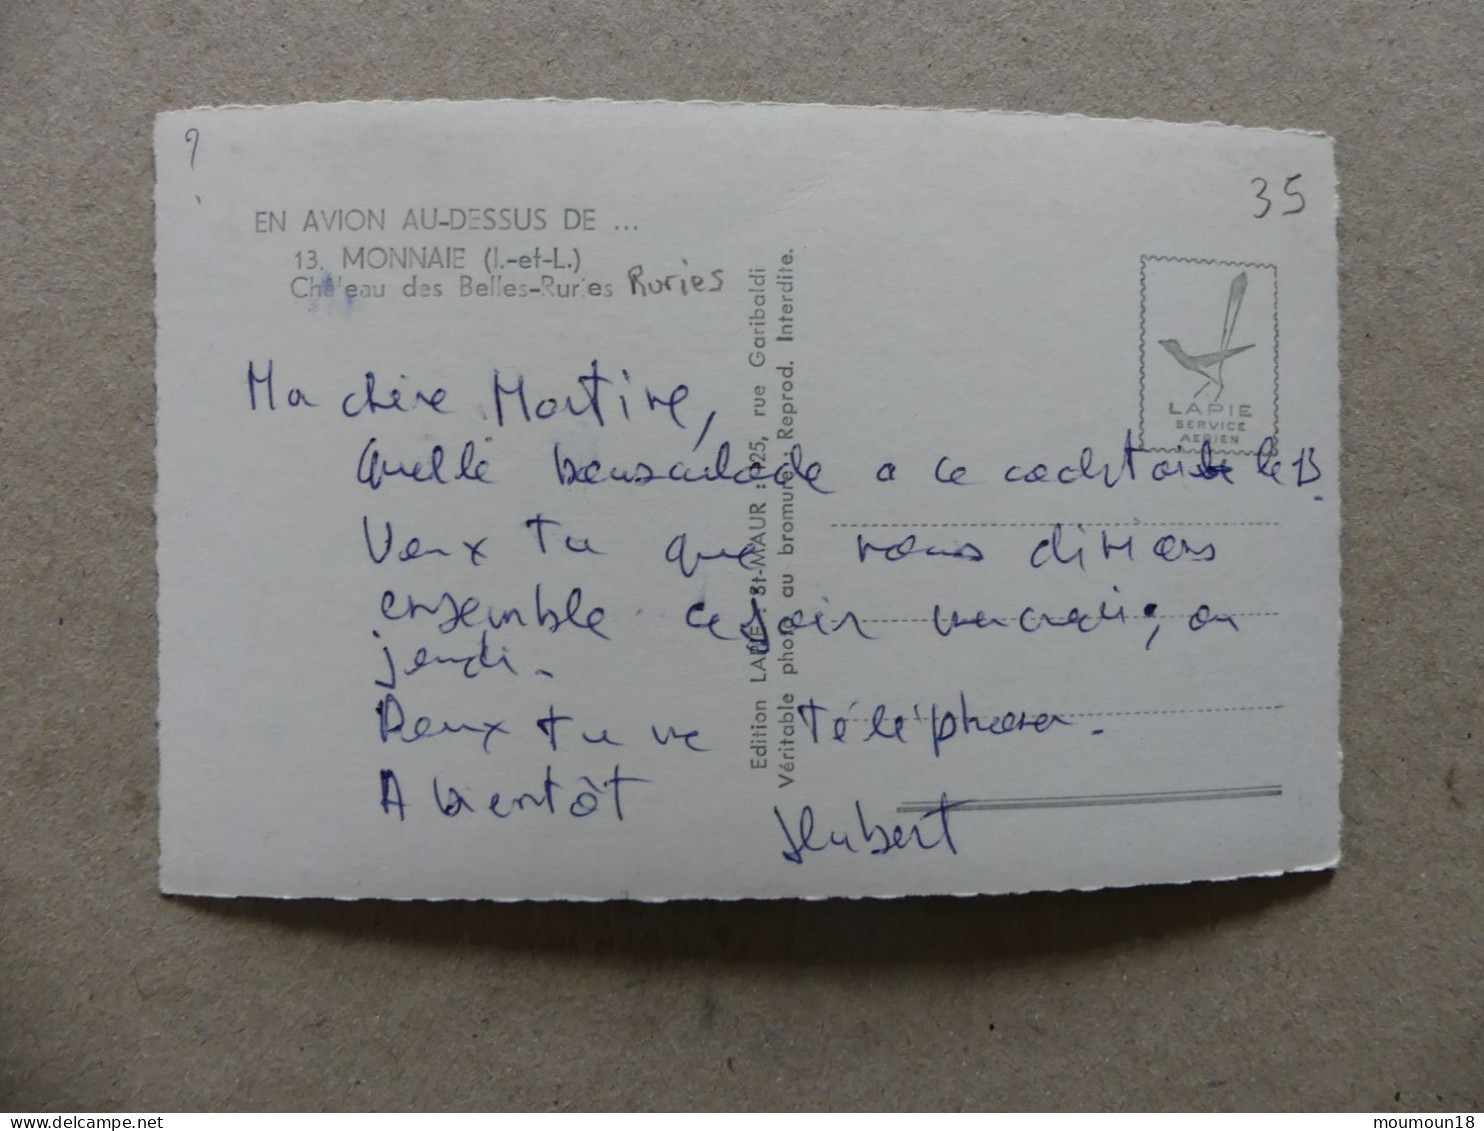 ?
35
EN AVION AU-DESSUS DE ...
13. MONNAIE (I.-et-L.)
Château des Belles-Ruries Ruries
LAPIE
SERVICE
AERIEN
Ma chère Martine,
Quelle bousculade a ce cocktail le 13.
Veux tu que nous dinions
ensemble ce soir mercredi, ou
jeudi.
Peux tu me téléphoner.
A bientôt
Hubert
Edition LAPIE : St-MAUR : 125, rue Garibaldi
Véritable photo au bromure. Reprod. Interdite.
www.delcampe.net
moumoun18